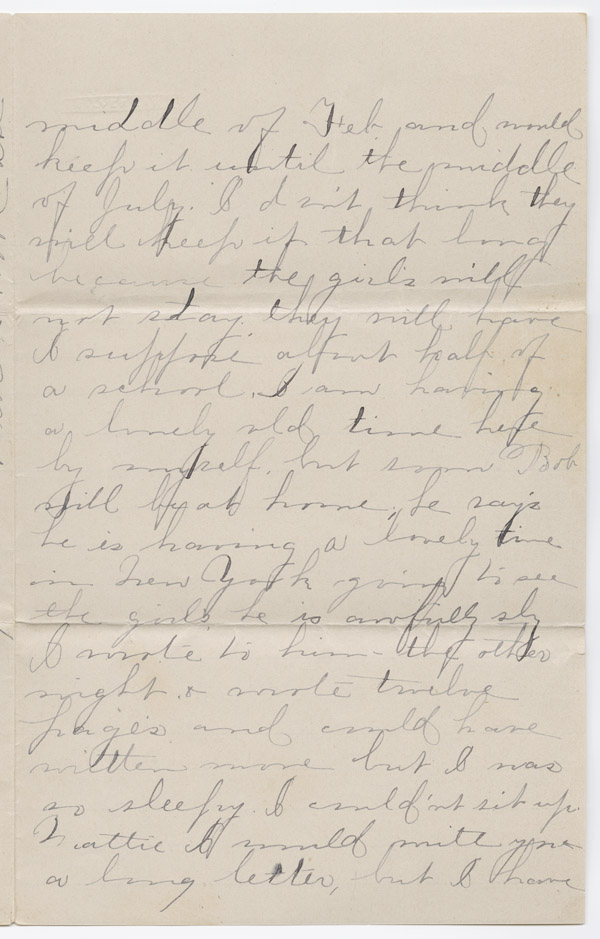 middle of Feb. and would
keep it until the middle
of July. I don't think they
will keep it that long
because the girls will
not stay. they will have
I suppose about half of
a school. I am having
a lonely old time here
by myself. but soon Bob
will be at home, he says
he is having a lovely time
in New York going to see
the girls he is awfully sly
I wrote to him the other
night & wrote twelve
pages and could have
written more but I was
so sleepy I could'nt sit up.
Mattie I would write you
a long letter, but I have